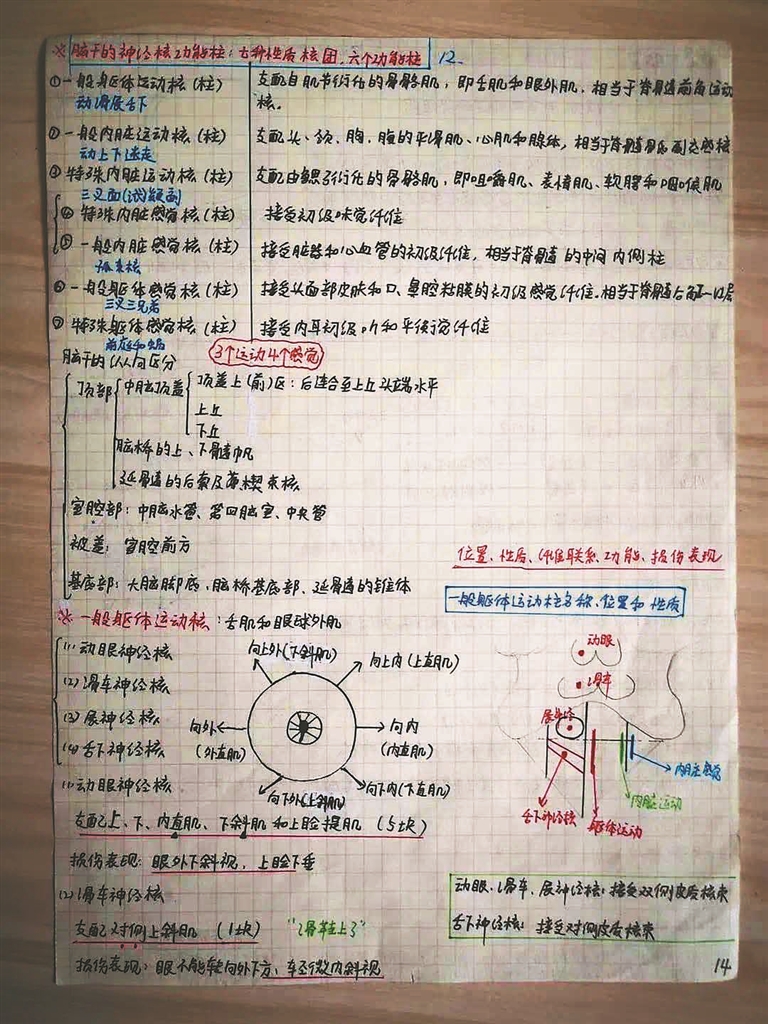 ※ 脑干的神经核功能柱：七种性质核团、六个功能柱 12.
①一般躯体运动核（柱） 支配自肌节衍化的骨骼肌，即舌肌和眼外肌，相当于脊髓前角运动
动滑展舌下 核。
②一般内脏运动核（柱） 支配头、颈、胸、腹的平滑肌、心肌和腺体，相当于脊髓骶副交感核
动上下迷走
③特殊内脏运动核（柱） 支配由鳃弓衍化的骨骼肌，即咀嚼肌、表情肌、软腭和咽喉肌
三叉面(试)疑副
④特殊内脏感觉核（柱） 接受初级味觉纤维
⑤一般内脏感觉核（柱） 接受脏器和心血管的初级纤维，相当于脊髓的中间内侧柱
孤束核
⑥一般躯体感觉核（柱） 接受头面部皮肤和口、鼻腔粘膜的初级感觉纤维.相当于脊髓后角I-IV层
三叉三兄弟
⑦特殊躯体感觉核（柱） 接受内耳初级听和平衡觉纤维
前庭和蜗
3个运动4个感觉
脑干的从向区分
顶部 中脑顶盖 顶盖上(前)区：后连合至上丘头端水平
上丘
下丘
脑桥的上、下髓帆
延髓的后索及薄楔束核
室腔部：中脑水管、第四脑室、中央管
被盖：室腔前方
位置、性质、纤维联系、功能、损伤表现
基底部：大脑脚底、脑桥基底部、延髓的锥体
一般躯体运动柱名称、位置和性质
※ 一般躯体运动核：舌肌和眼球外肌
(1)动眼神经核
(2)滑车神经核
(3)展神经核
(4)舌下神经核
向上外(下斜肌)
向上内(上直肌)
向外
(外直肌)
向内
(内直肌)
向下外(上斜肌)
向下内(下直肌)
动眼
滑车
展神经
内脏感觉
内脏运动
舌下神经核
躯体运动
(1)动眼神经核
支配上、下、内直肌、下斜肌和上睑提肌（5块）
损伤表现：眼外下斜视，上睑下垂
(2)滑车神经核
支配对侧上斜肌（1块） “滑车在上了”
损伤表现：眼不能转向外下方，轻微内斜视
动眼、滑车、展神经核：接受双侧皮质核束
舌下神经核：接受对侧皮质核束
14